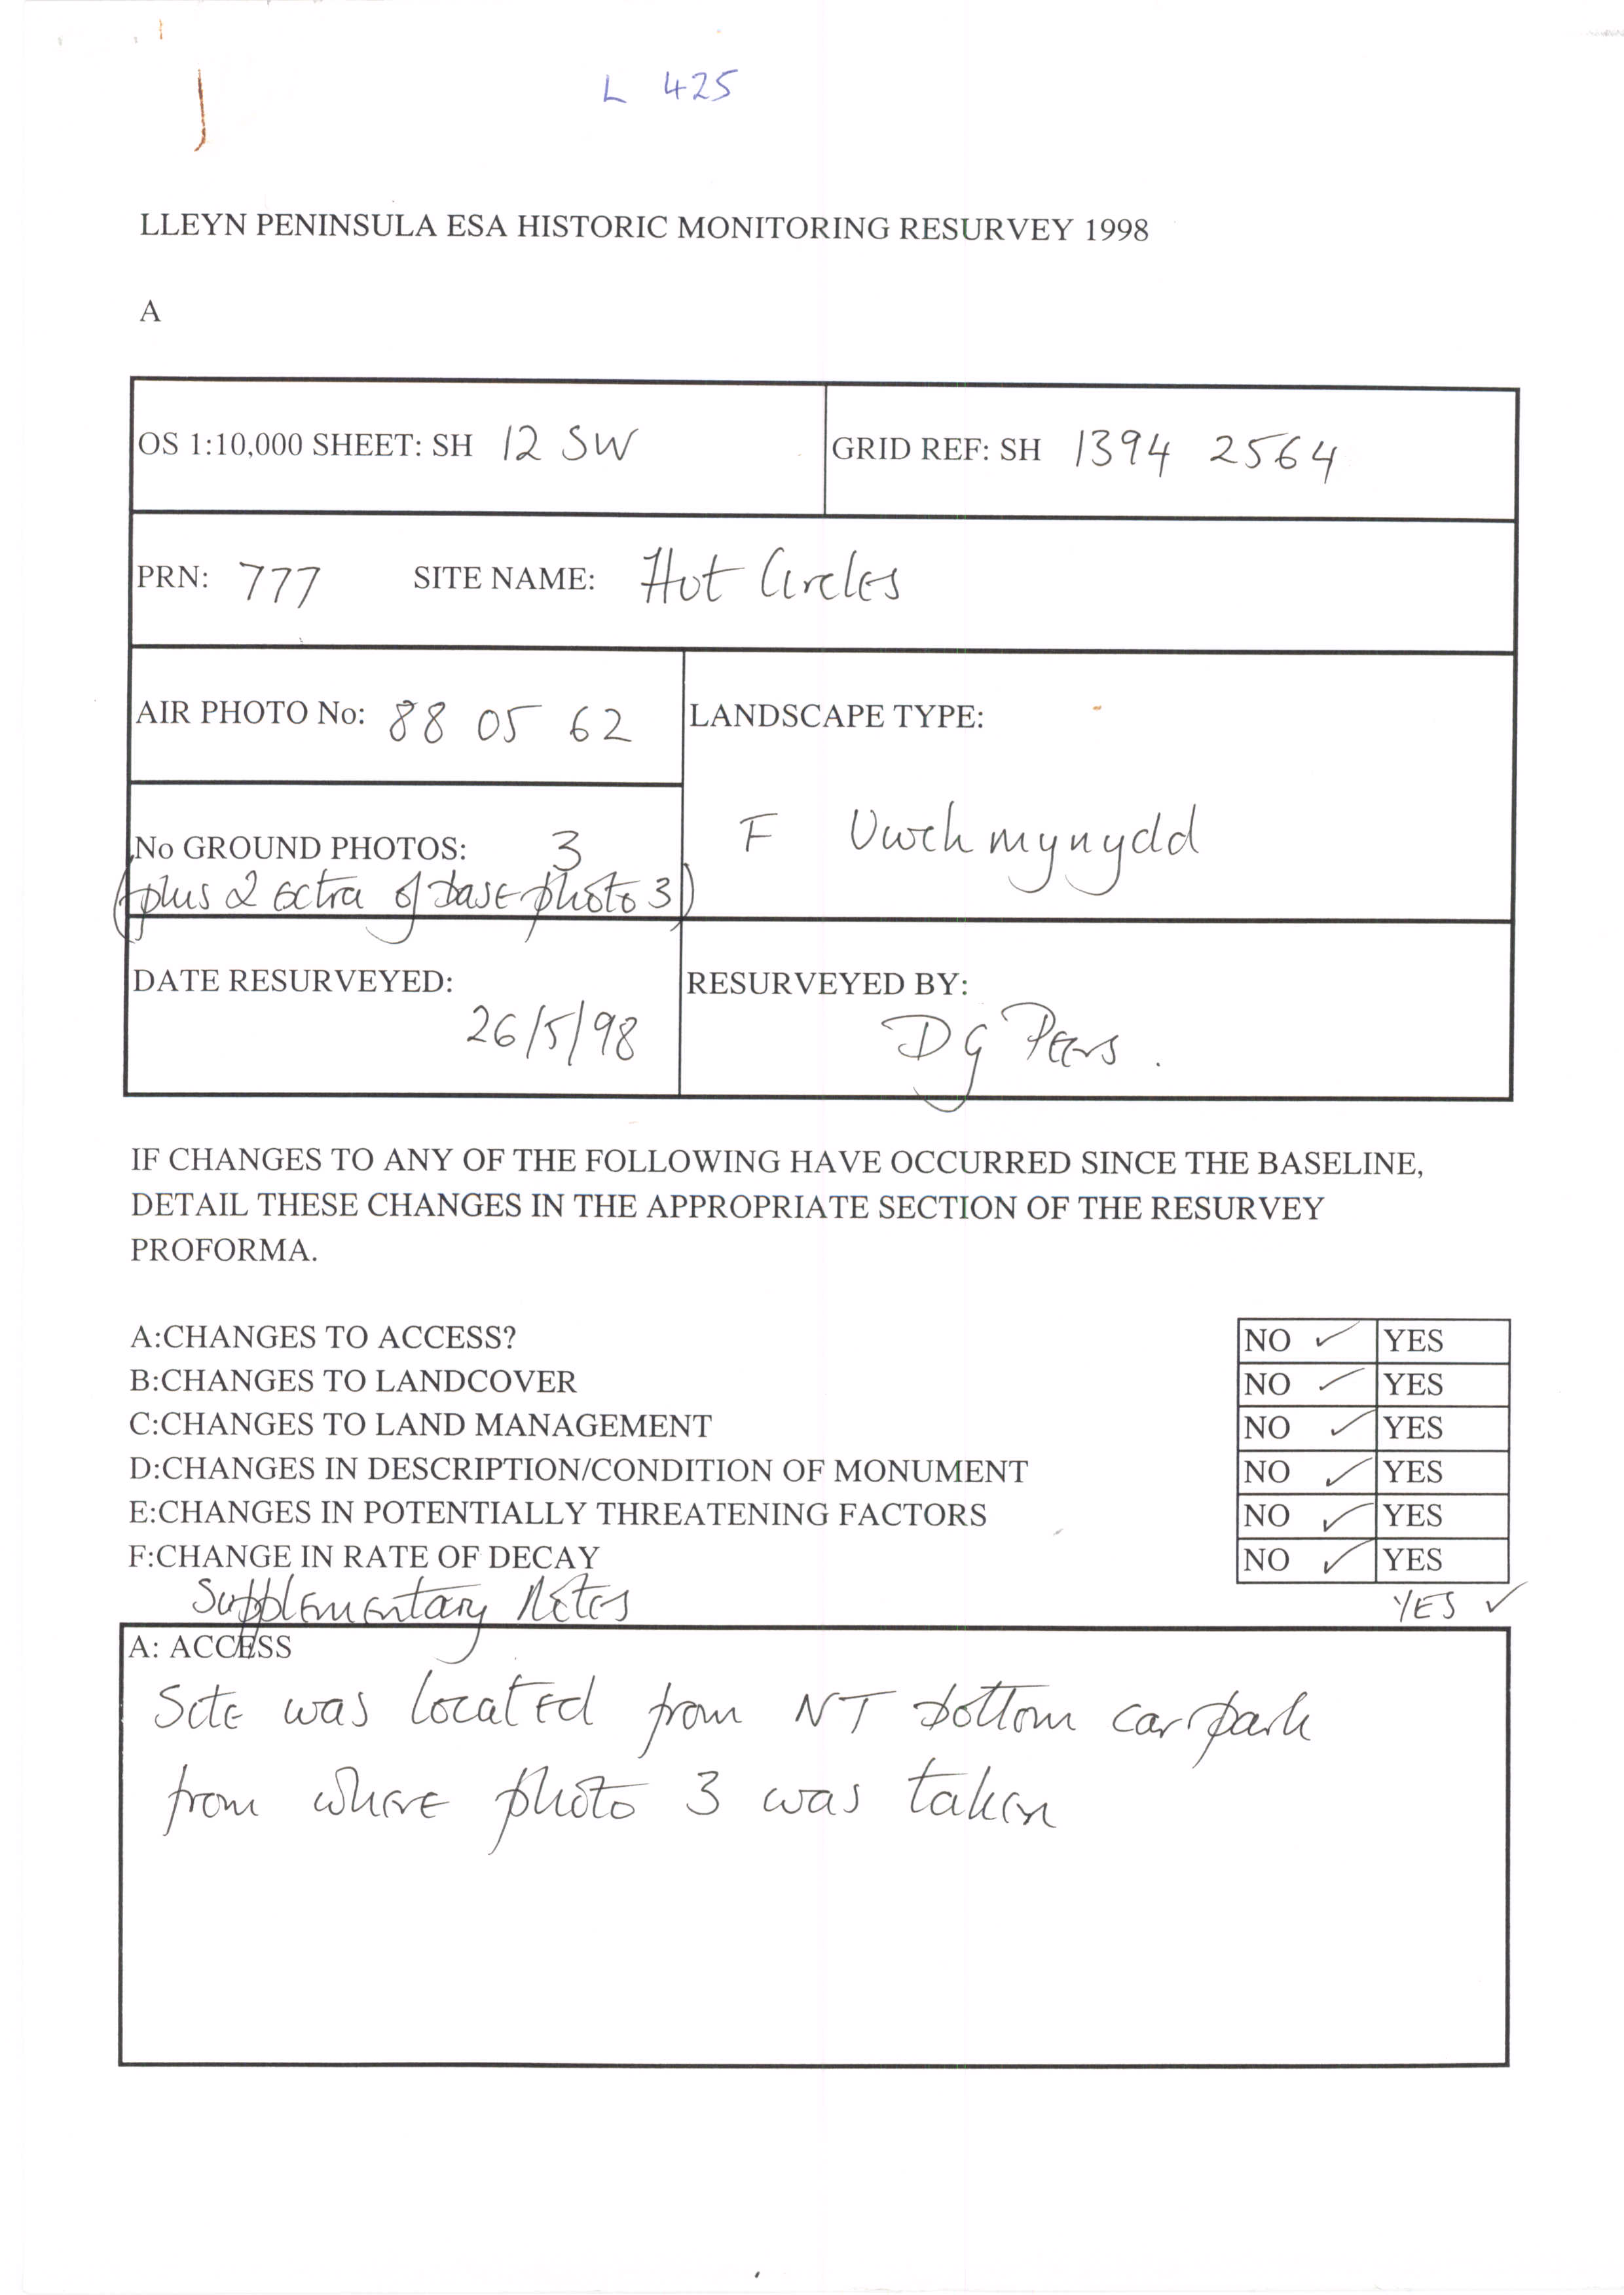 L 425
LLEYN PENINSULA ESA HISTORIC MONITORING RESURVEY 1998
A
OS 1:10,000 SHEET: SH 12 SW
GRID REF: SH 1394 2564
PRN: 777 SITE NAME: Hut Circles
AIR PHOTO No: 88 05 62
LANDSCAPE TYPE:
F Uwch mynydd
No GROUND PHOTOS: 3
(plus 2 extra of base photo 3)
DATE RESURVEYED:
26/5/98
RESURVEYED BY:
DG Peers.
IF CHANGES TO ANY OF THE FOLLOWING HAVE OCCURRED SINCE THE BASELINE,
DETAIL THESE CHANGES IN THE APPROPRIATE SECTION OF THE RESURVEY
PROFORMA.
A:CHANGES TO ACCESS? NO ✓ YES
B:CHANGES TO LANDCOVER NO ✓ YES
C:CHANGES TO LAND MANAGEMENT NO ✓ YES
D:CHANGES IN DESCRIPTION/CONDITION OF MONUMENT NO ✓ YES
E:CHANGES IN POTENTIALLY THREATENING FACTORS NO ✓ YES
F:CHANGE IN RATE OF DECAY NO ✓ YES
Supplementary Notes YES ✓
A: ACCESS
Site was located from NT bottom car park
from where photo 3 was taken